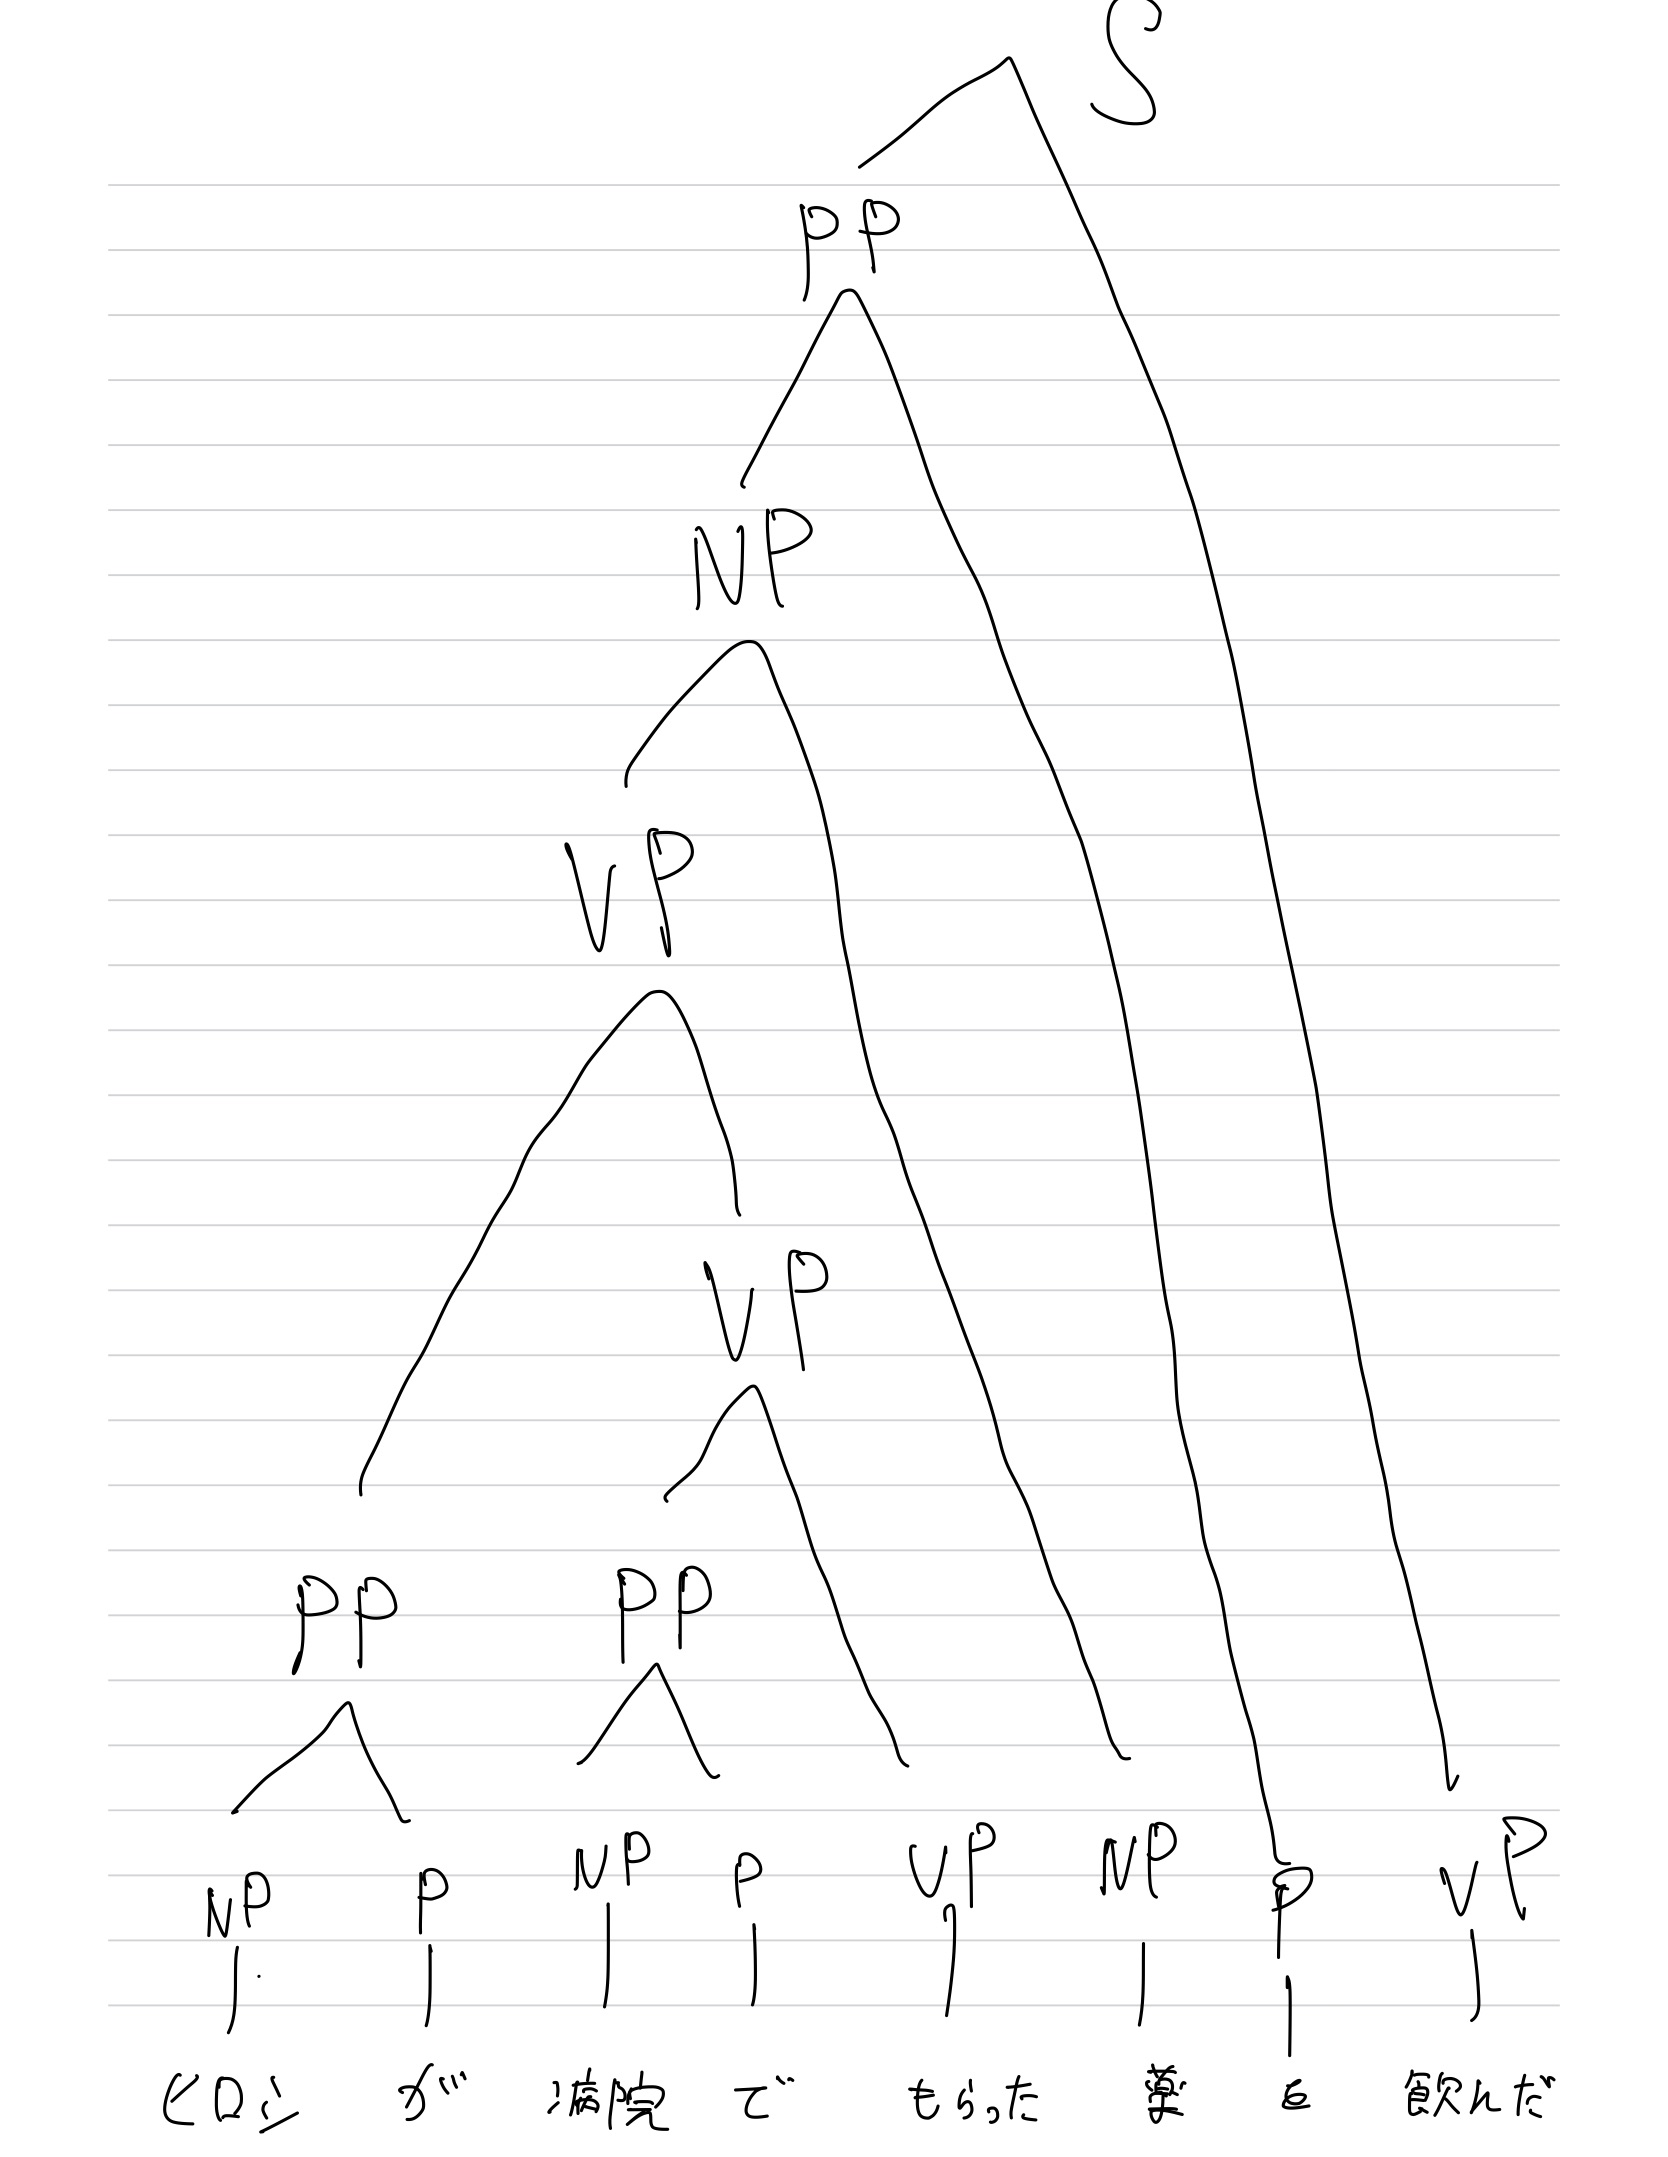 S
PP
NP
VP
VP
PP PP
NP P NP P VP NP P VP
ヒロシ が 病院 で もらった 薬 を 飲んだ